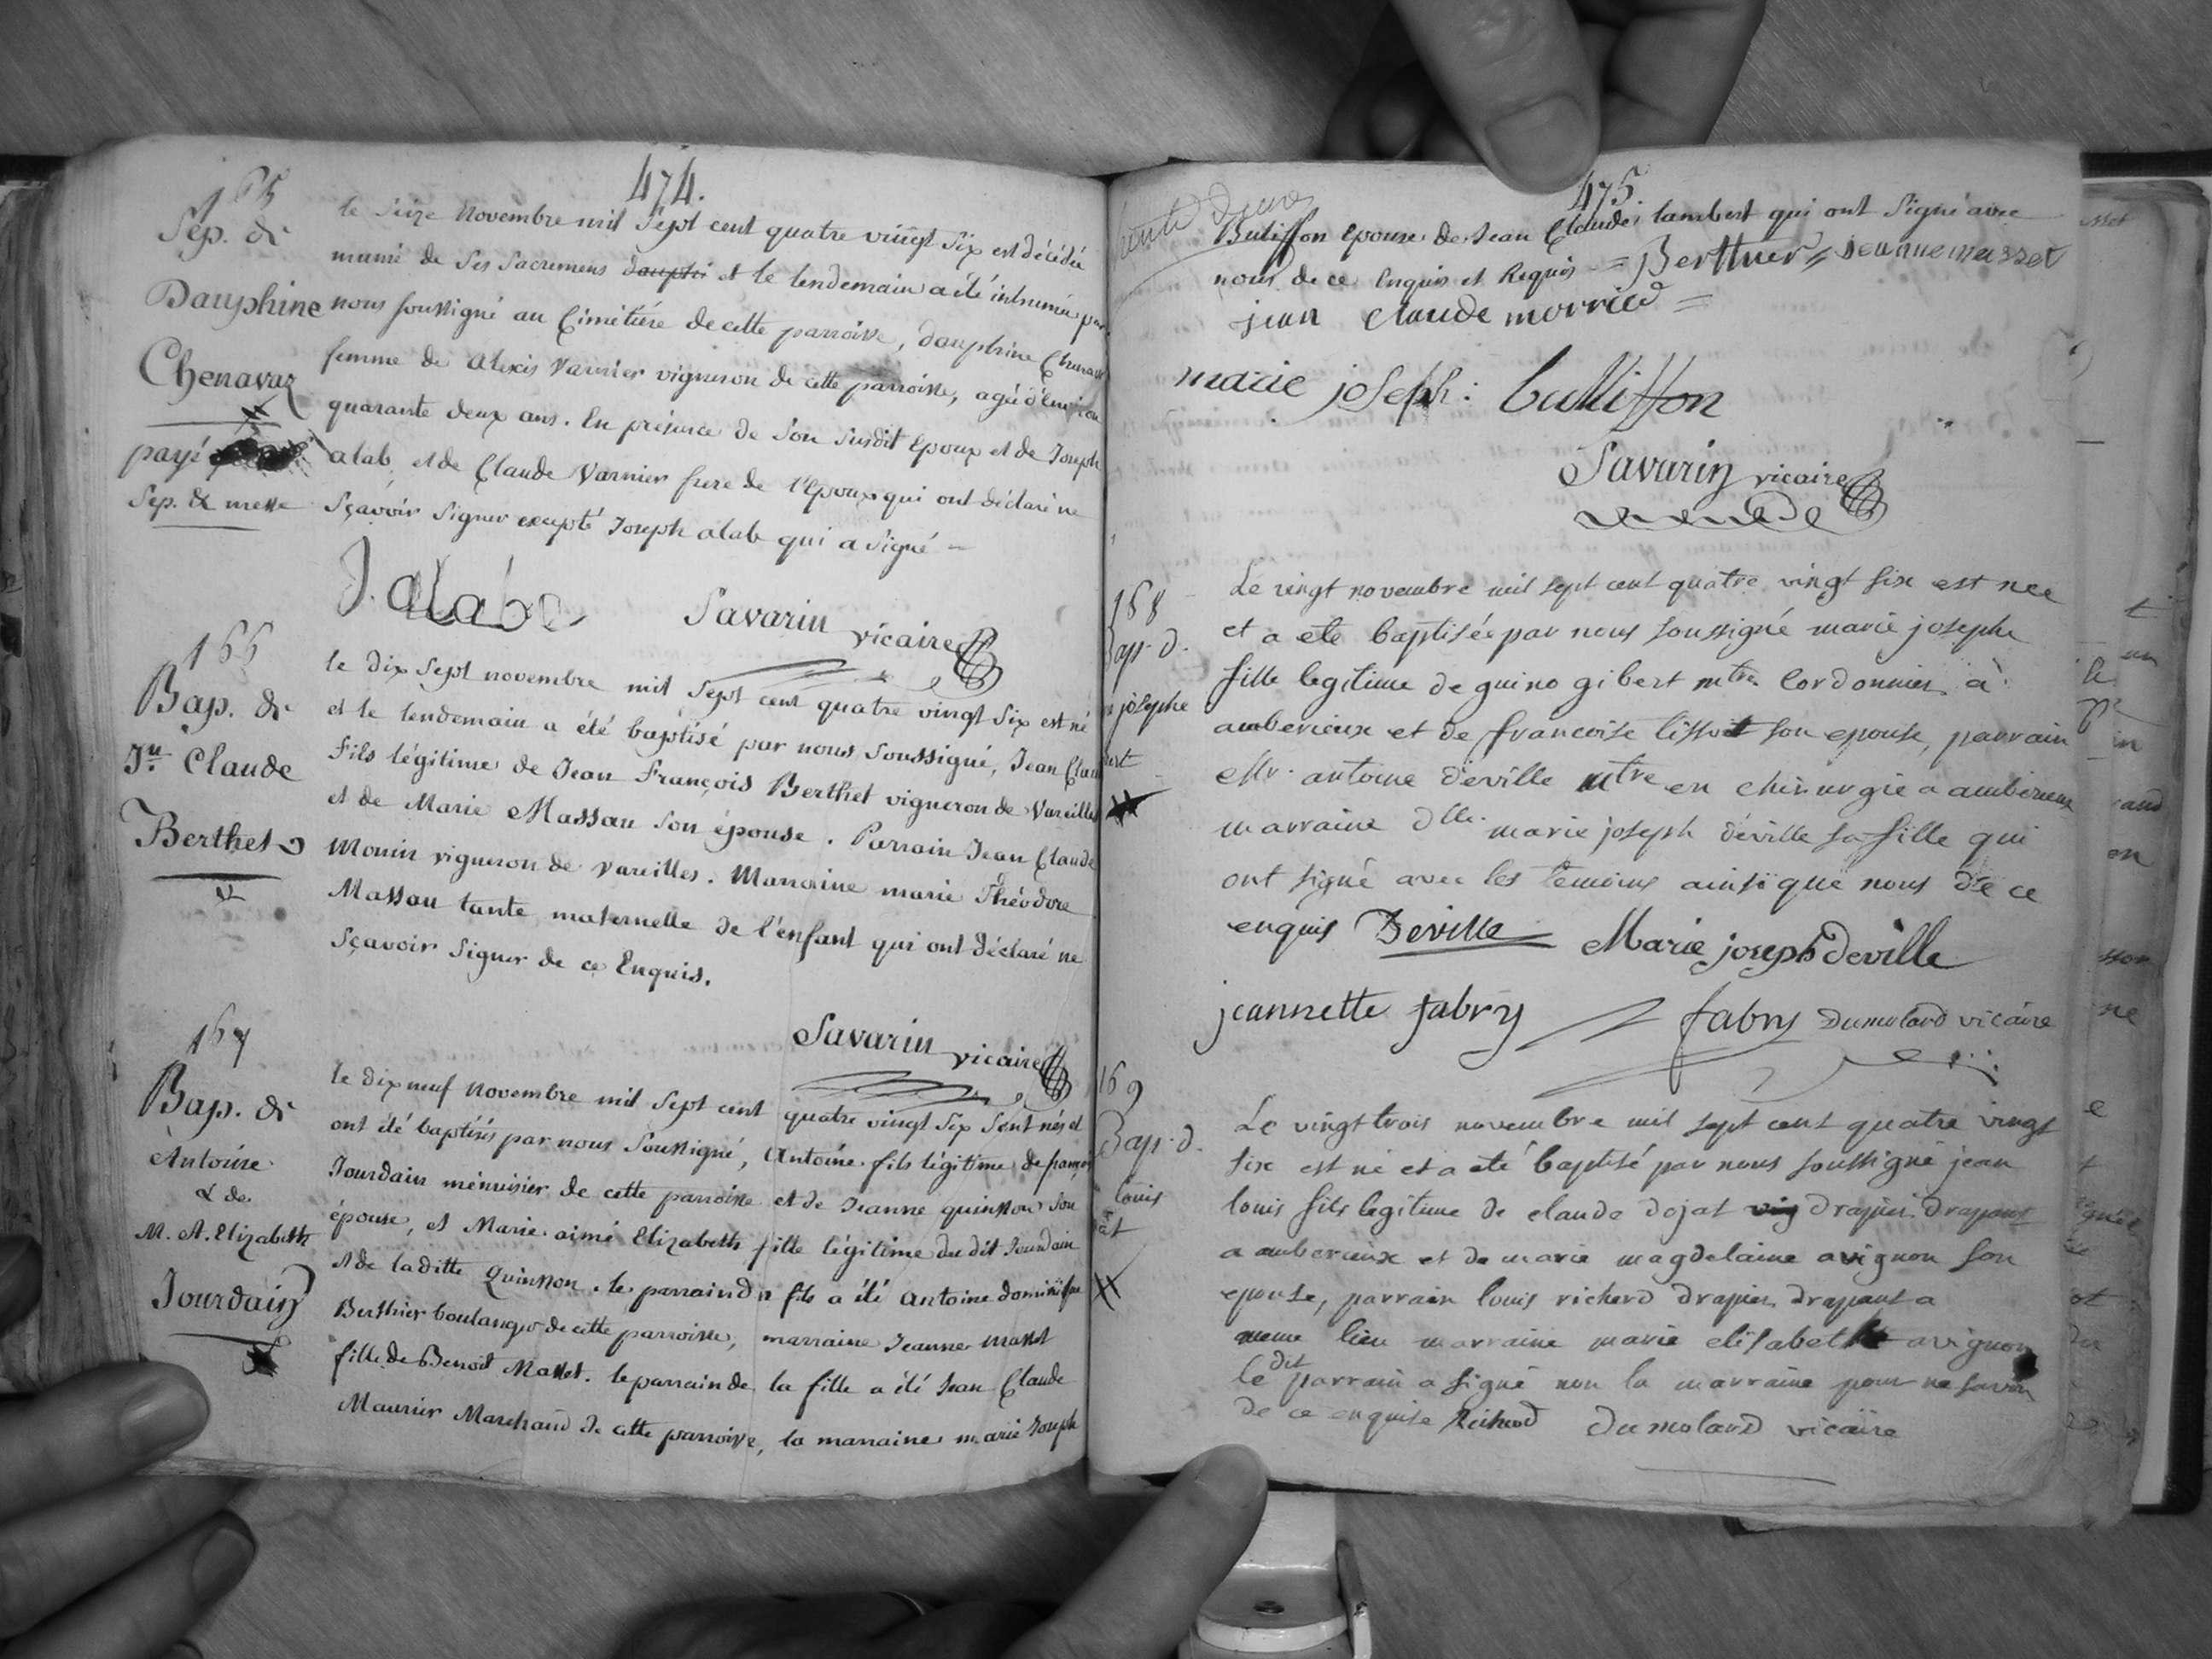 474.
165
Sep. de
Dauphine
Chenavaz
payé
Sep. & messe
le seize Novembre mil Sept cent quatre vingt Six est décédée
munié de Ses Sacremens dauphi et le lendemain a été inhumée par
nous soussigné au Cimétiére de cette parroisse, dauphine Chenavaz
femme de alexis Varnier vigneron de cette parroisse, agée d'environ
quarante deux ans. En présence de Son Susdit Epoux et de Joseph
alab, et de Claude Varnier frere de l'Epoux qui ont déclaré ne
Sçavoir Signer excepté Joseph alab qui a signé =
J. alabe
Savarin vicaire
166
Bap. de
Jn. Claude
Berthet
le dix Sept novembre mil Sept cent quatre vingt Six est né
et le lendemain a été baptisé par nous Soussigné, Jean Claude
fils légitime de Jean François Berthet vigneron de Vareilles
et de Marie Massau son épouse. Parrain Jean Claude
Monin vigneron de Vareilles. Marraine marie Théodore
Massau tante maternelle de l'enfant qui ont déclaré ne
Sçavoir Signer de ce Enquis.
Savarin vicaire
167
Bap. de
Antoine
& de
M. A. Elizabeth
Jourdain
le dix neuf Novembre mil Sept cent quatre vingt Six Sont nés et
ont été baptisés par nous Soussigné, Antoine fils légitime de françois
Jourdain ménuisier de cette parroisse et de Jeanne quinson Son
épouse, et Marie aimé Elizabeth fille légitime du dit Jourdain
et de la ditte Quinson. le parrain du fils a été Antoine dominique
Berthier boulanger de cette parroisse, marraine Jeanne Masset
fille de Benoit Masset. le parrain de la fille a été Jean Claude
Maurier Marchand de cette parroisse, la marraine marie Joseph
475.
Buliffon Epouse de Jean Claude lambert qui ont Signé avec
nous de ce Enquis et Requis = Berthier = jeanne masset
jean claude morrier =
marie joseph: bulliffon
Savarin vicaire
168
Bap. d.
josephe
Le vingt novembre mil sept cent quatre vingt six est nee
et a ete baptisée par nous soussigné marie josephe
fille legitime de guino gibert mtre Cordonnier à
amberieux et de francoise lissot son epouse, parrain
Mr. antoine deville mtre en chirurgie a amberieux
marraine dlle. marie joseph déville sa fille qui
ont signé avec les temoins ainsi que nous de ce
enquis Deville Marie joseph deville
jeannette fabry fabry Dumolard vicaire
169
Bap. d.
louis
Le vingt trois novembre mil sept cent quatre vingt
six est né et a eté baptisé par nous soussigné jean
louis fils legitime de claude dojat drapier drapant
a amberieux et de marie magdelaine avignon son
epouse, parrain louis richerd drapier drapant a
meme lieu marraine marie elisabeth avignon
le dit parrain a signé non la marraine pour ne savoir
de ce enquise Richerd Dumolard vicaire